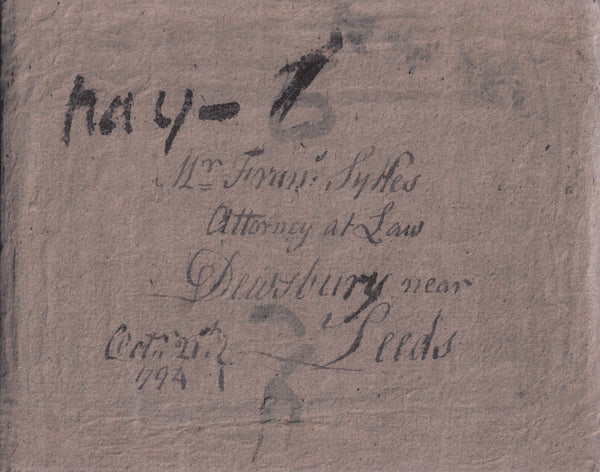 pay - 1
Mr. Frans. Sykes
Attorney at Law
Dewsbury near
Leeds
Octr. 21st.
1794